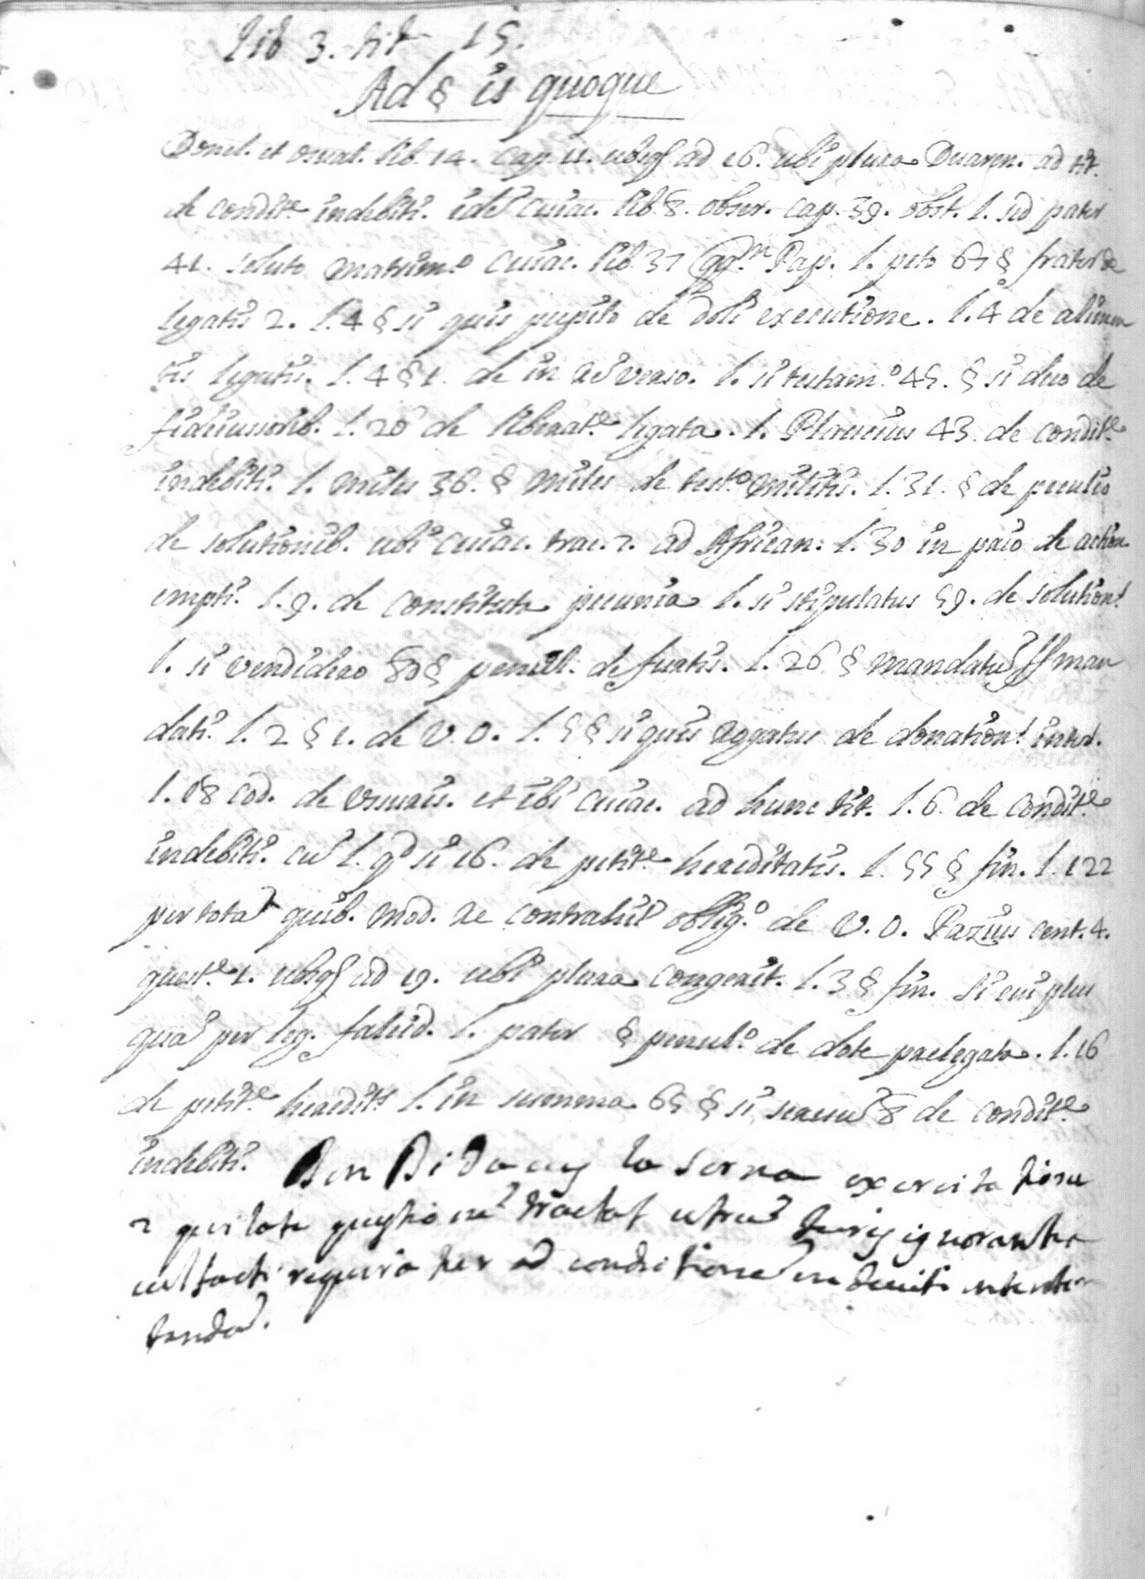 Lib 3. tit 15.
Ad § is quoque
Donel. et osuat. lib. 14. cap. 11. usqȝ ad 16. ubi plura Duaren. ad tit.
de condit.e indebiti. idē cuiac. lib. 8. obser. cap. 39. obst. l. sed pater
41. soluto matrim.o cuiac. lib. 37 qq.m Pap. l. peto 67 § frater de
legatis 2. l. 4 § si quis pupilo de doli exceutione. l. 4 de alimen
tis legatis. l. 4 § 1. de in rē verso. l. si testam.o 45. § si duo de
fidiiussorib. l. 20 de liberat.e legata. l. Plaucius 43. de condit.e
indebiti. l. miles 36. § miles de test.o militis. l. 31. § de peculio
de solutionib. ubi cuiac. trac. 7. ad African. l. 30 in prio de action.
empti. l. 9. de constituta pecunia l. si stipulatus 59. de solution.
l. si vendidero 80 § penul. de furtis. l. 26 § mandatū ff man
dati. l. 2 § 1. de V. O. l. 5 § si quis rogatus de donation. inter.
l. 18 cod. de usuris. et ibi cuiac. ad hunc tit. l. 6. de condit.e
indebiti. cū l. qd si 16. de petit.e hereditatis. l. 55 § fin. l. 122
per totā quib. mod. re contrahit oblig.o de V. O. Pazius cent. 4.
quest.e 1. usqȝ ad 19. ubi plura congerit. l. 3 § fin. si cui plus
quā per leg. falcid. l. pater § penul.o de dote prelegata. l. 16
de petit.e heredit. l. in summa 65 § si seruū 8 de condit.e
indebiti. Don Didacus la Serna exercita
2 qui late questionē tractat utrū iuris ignorantia
uel facti requiratur ad condictionē indebiti intente
tandā.